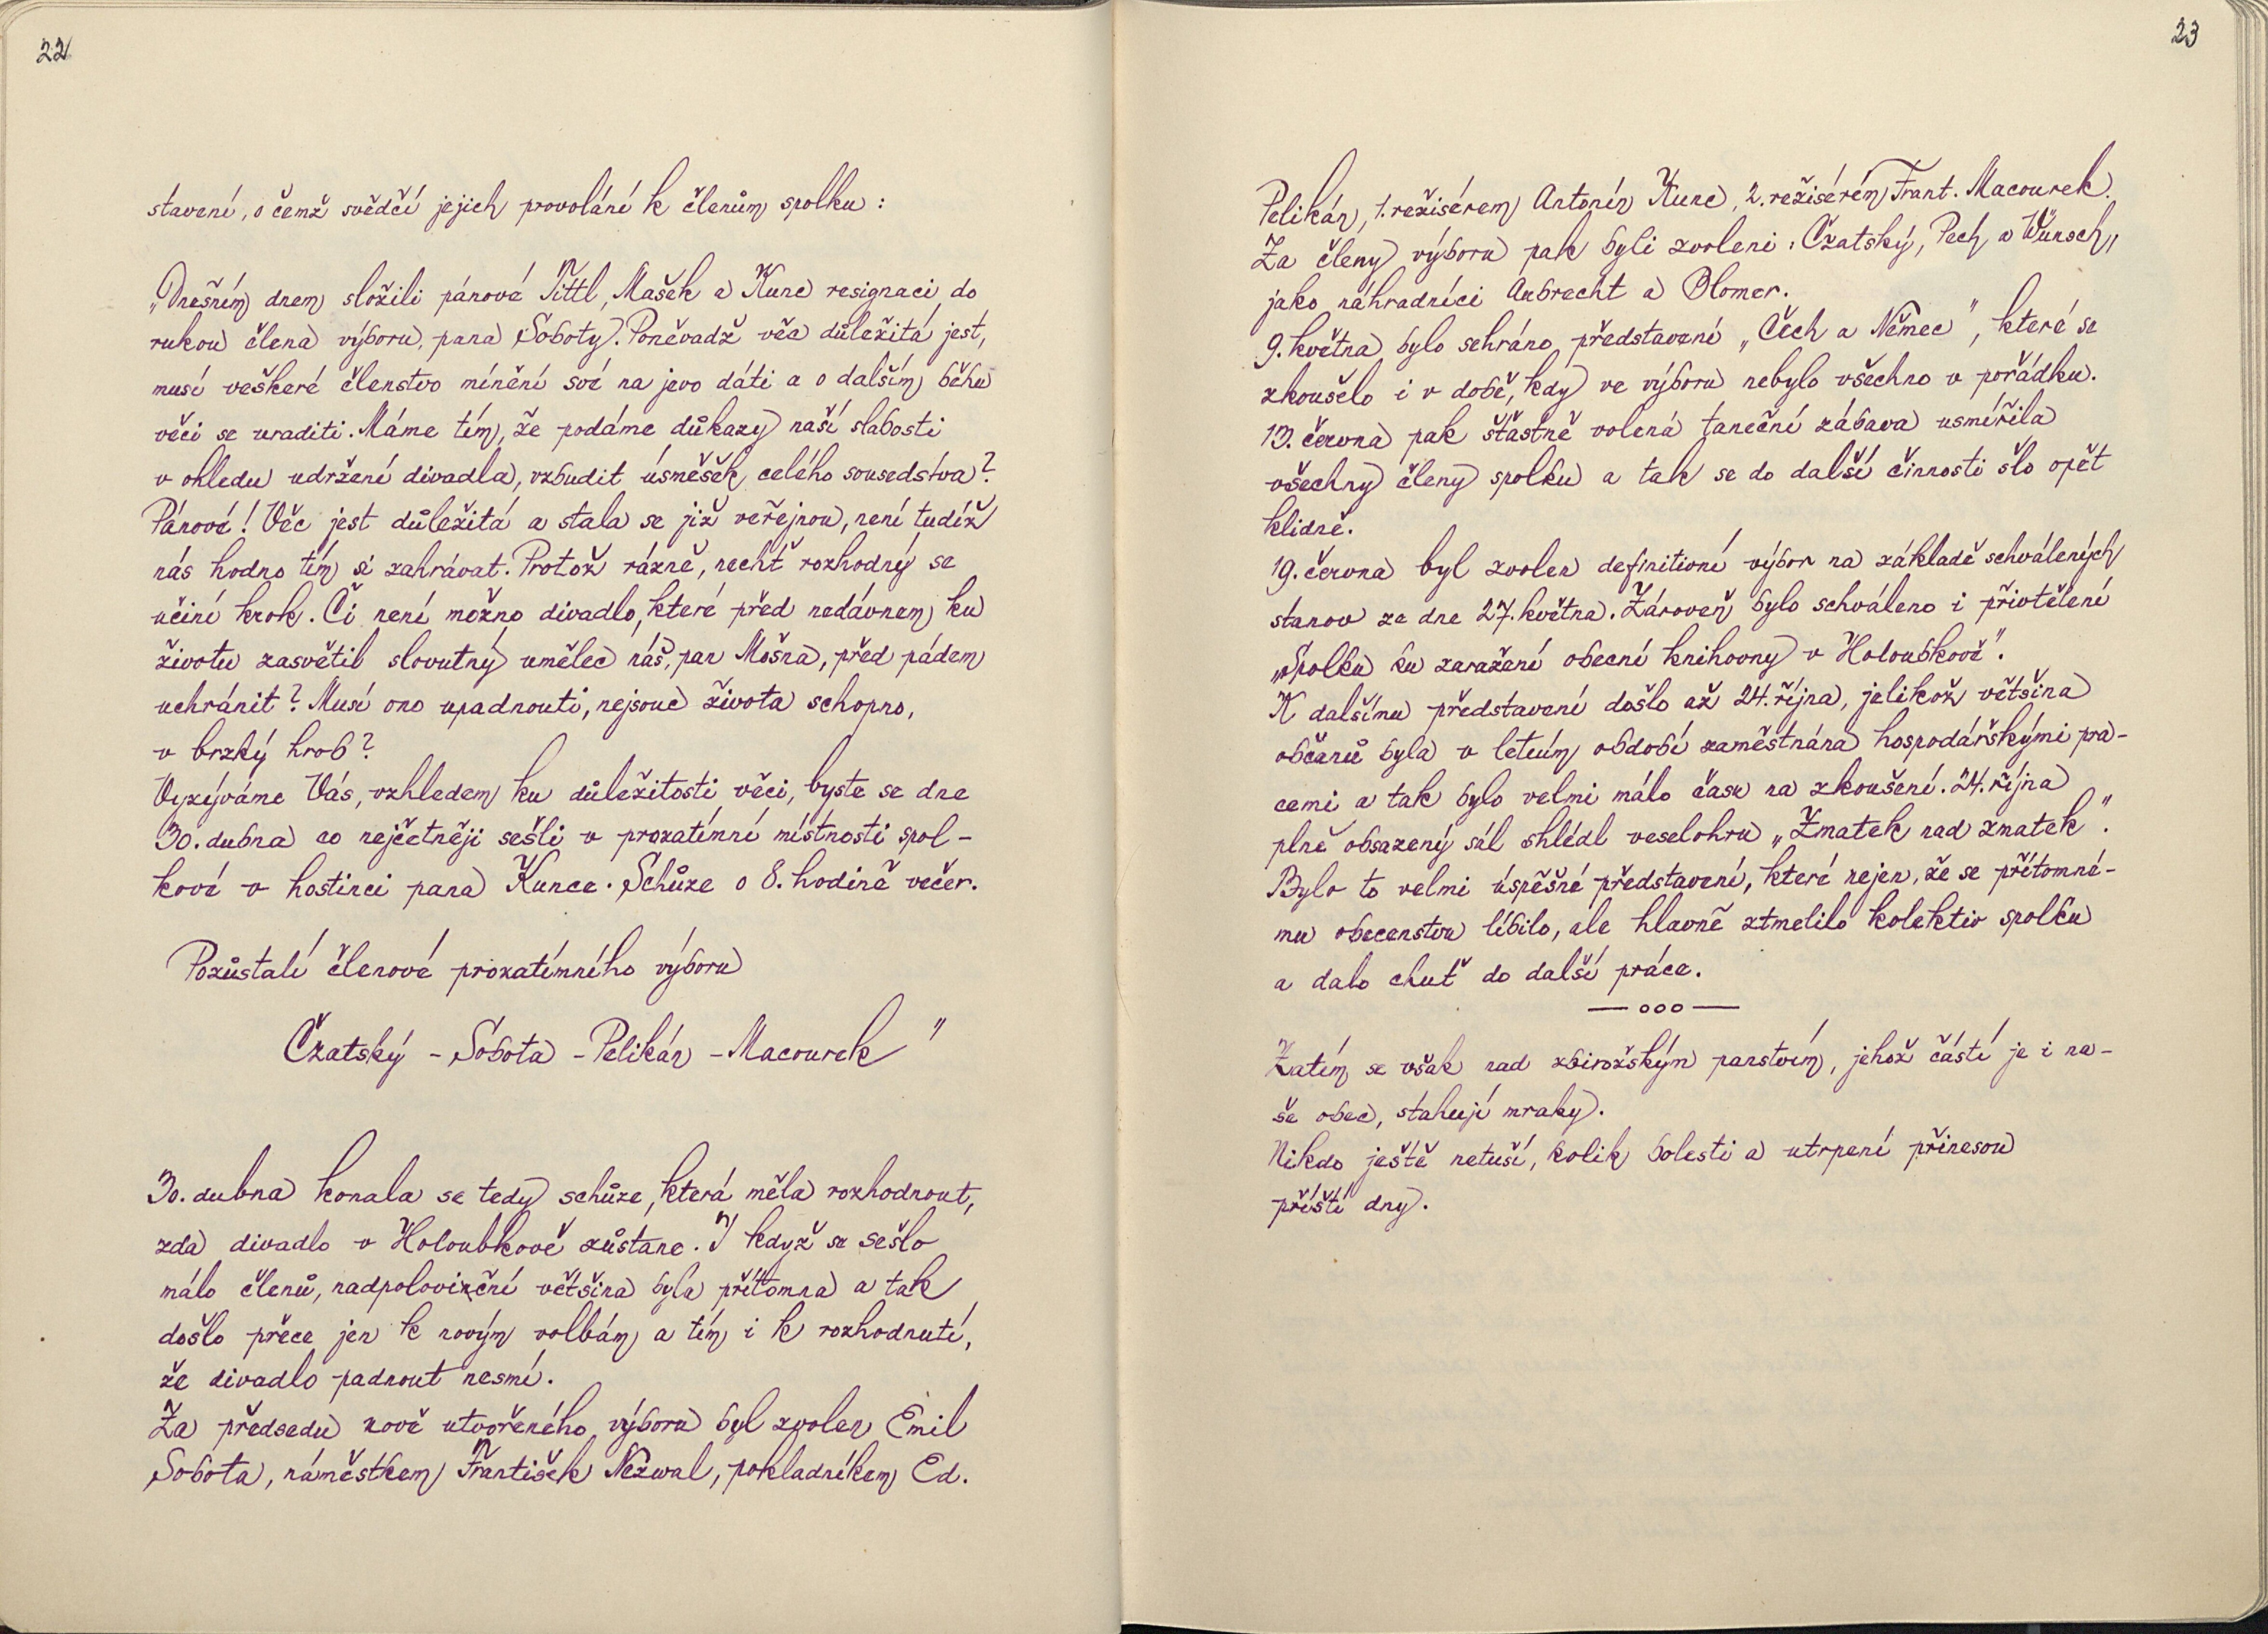 22
stavení, o čemž svědčí jejich provolání k členům spolku:
„Dnešním dnem složili pánové Tittl, Mašek a Kunc resignaci do
rukou člena výboru, pana Soboty. Poněvadž věc důležitá jest,
musí veškeré členstvo mínění své na jevo dáti a o dalším běhu
věci se uraditi. Máme tím, že podáme důkazy naší slabosti
v ohledu udržení divadla, vzbudit úsměšek celého sousedstva?
Pánové! Věc jest důležitá a stala se již veřejnou, není tudíž
nás hodno tím si zahrávat. Protož rázně, nechť rozhodný se
učiní krok. Či není možno divadlo, které před nedávnem ku
životu zasvětil slovutný umělec náš, pan Mošna, před pádem
uchránit? Musí ono upadnouti, nejsouc života schopno,
v brzký hrob?
Vyzýváme Vás, vzhledem ku důležitosti věci, byste se dne
30. dubna co nejčetněji sešli v prozatímní místnosti spol-
kové v hostinci pana Kunce. Schůze o 8. hodině večer.
Pozůstalí členové prozatímního výboru
Čzatský - Sobota - Pelikán - Macourek"
30. dubna konala se tedy schůze, která měla rozhodnout,
zda divadlo v Holoubkově zůstane. I když se sešlo
málo členů, nadpolovinční většina byla přítomna a tak
došlo přece jen k novým volbám a tím i k rozhodnutí,
že divadlo padnout nesmí.
Za předsedu nově utvořeného výboru byl zvolen Emil
Sobota, náměstkem František Nezwal, pokladníkem Ed.
23
Pelikán, 1. režisérem Antonín Kunc, 2. režisérem Frant. Macourek.
Za členy výboru pak byli zvoleni: Čzatský, Pech a Wünsch,
jako náhradníci Aubrecht a Blomer.
9. května bylo sehráno představení „Čech a Němec", které se
zkoušelo i v době, kdy ve výboru nebylo všechno v pořádku.
13. června pak šťastně volená taneční zábava usmířila
všechny členy spolku a tak se do další činnosti šlo opět
klidně.
19. června byl zvolen definitivní výbor na základě schválených
stanov ze dne 27. května. Zároveň bylo schváleno i přivtělení
„Spolku ku zaražení obecní knihovny v Holoubkově".
K dalšímu představení došlo až 24. října, jelikož většina
občanů byla v letním období zaměstnána hospodářskými pra-
cemi a tak bylo velmi málo času na zkoušení. 24. října
plně obsazený sál shlédl veselohru „Zmatek nad zmatek".
Bylo to velmi úspěšné představení, které nejen, že se přítomné-
mu obecenstvu líbilo, ale hlavně ztmelilo kolektiv spolku
a dalo chuť do další práce.
— ooo —
Zatím se však nad zbirožským panstvím, jehož částí je i na-
še obec, stahují mraky.
Nikdo ještě netuší, kolik bolesti a utrpení přinesou
příští dny.